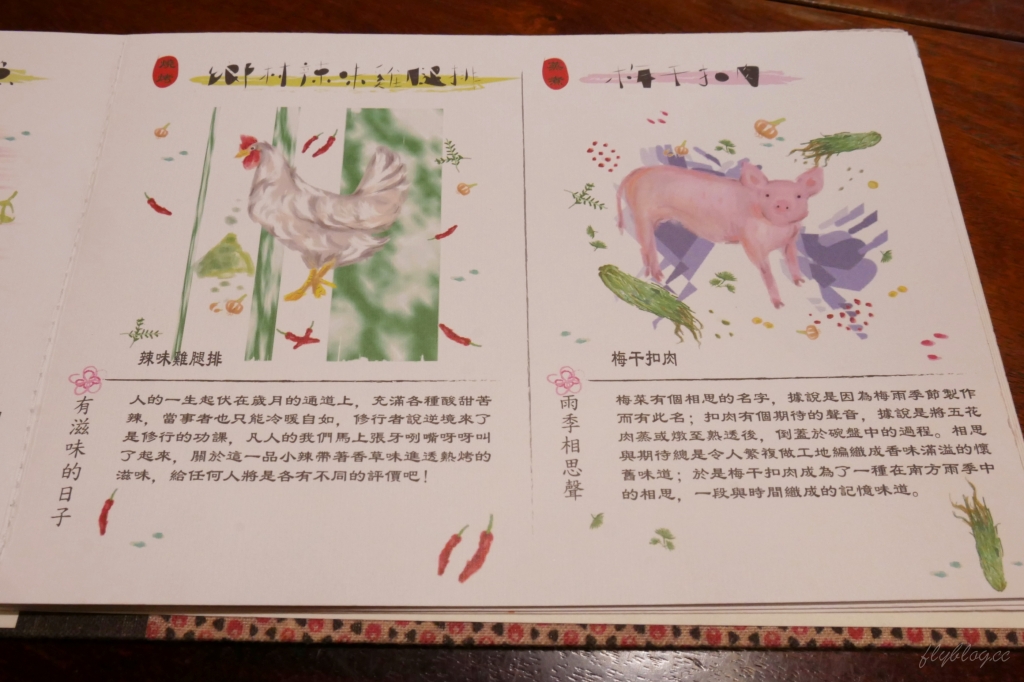 鄉村辣味雞腿排
辣味雞腿排
有滋味的日子
人的一生起伏在歲月的通道上，充滿各種酸甜苦
辣，當事者也只能冷暖自如，修行者說逆境來了
是修行的功課，凡人的我們馬上張牙咧嘴呀呀叫
了起來，關於這一品小辣帶著香草味進透熱烤的
滋味，給任何人將是各有不同的評價吧！
梅干扣肉
梅干扣肉
雨季相思聲
梅菜有個相思的名字，據說是因為梅雨季節製作
而有此名；扣肉有個期待的聲音，據說是將五花
肉蒸或燉至熟透後，倒蓋於碗盤中的過程。相思
與期待總是令人繁複做工地編織成香味滿溢的懷
舊味道；於是梅干扣肉成為了一種在南方雨季中
的相思，一段與時間織成的記憶味道。
flyblog.cc